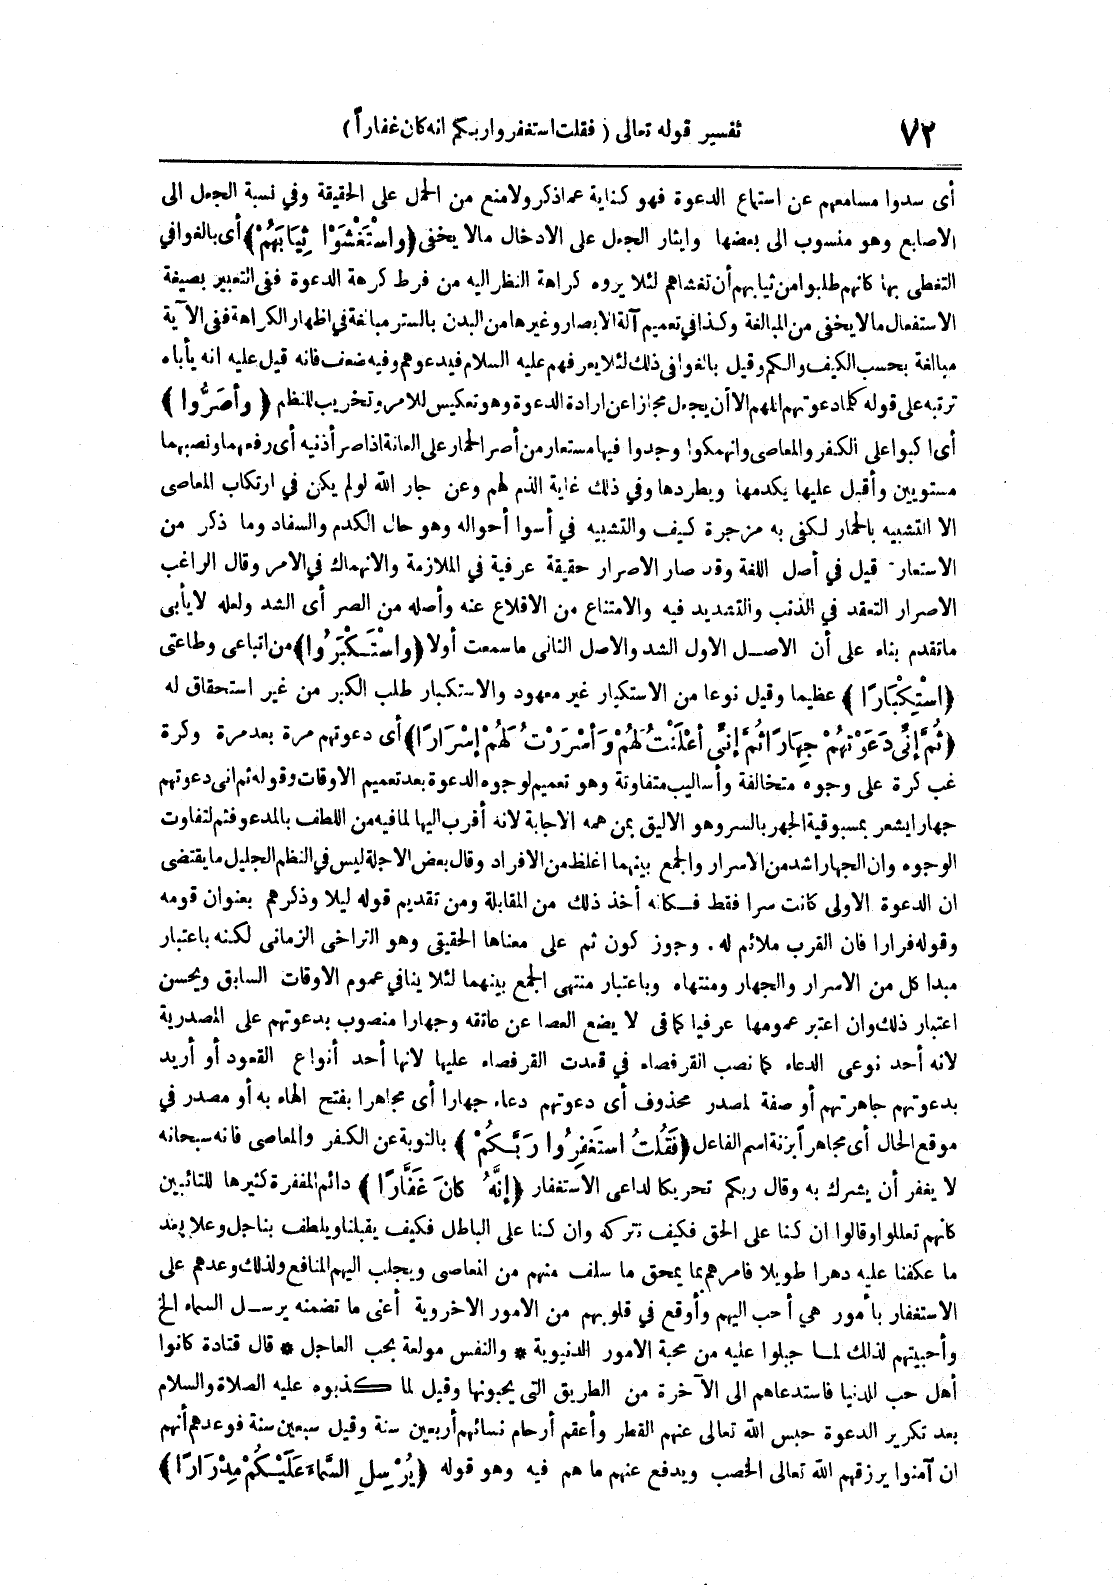 ٧٢
تفسير قوله تعالى ( فقلت استغفروا ربكم انه كان غفاراً )
أى سدوا مسامعهم عن استماع الدعوة فهو كناية عما ذكر ولا منع من الحمل على الحقيقة وفي نسبة الجعل الى
الاصابع وهو منسوب الى بعضها وايثار الجعل على الادخال مالا يخفى (واسْتَغْشَوْا ثِيَابَهُمْ) أى بالغوا في
التغطى بها كأنهم طلبوا من ثيابهم أن تغشاهم لئلا يروه كراهة النظر اليه من فرط كرهة الدعوة ففى التعبير بصيغة
الاستفعال مالا يخفى من المبالغة وكذا في تعميم آلة الابصار وغيرها من البدن بالستر مبالغة في اظهار الكراهة ففى الآية
مبالغة بحسب الكيف والكم وقيل بالغوا فى ذلك لئلا يعرفهم عليه السلام فيدعوهم وفيه ضعف فانه قيل عليه انه يأباه
ترتبه على قوله كلما دعوتهم اللهم الا أن يجعل مجازا عن ارادة الدعوة وهو تعكيس للامر وتخريب للنظم ( وأصَرُّوا )
أى اكبوا على الكفر والمعاصى وانهمكوا وجدوا فيها مستعار من أصر الحمار على العانة اذا صر أذنيه أى رفعهما ونصبهما
مستويين وأقبل عليها يكدمها ويطردها وفي ذلك غاية الذم لهم وعن جار الله لو لم يكن في ارتكاب المعاصى
الا التشبيه بالحمار لكفى به مزجرة كيف والتشبيه في أسوا أحواله وهو حال الكدم والسفاد وما ذكر من
الاستعارة قيل في أصل اللغة وقد صار الاصرار حقيقة عرفية في الملازمة والانهماك في الامر وقال الراغب
الاصرار التعقد في الذنب والتشديد فيه والامتناع من الاقلاع عنه وأصله من الصر أى الشد ولعله لا يأبى
ما تقدم بناء على أن الاصل الاول الشد والاصل الثانى ما سمعت أولا (واسْتَكْبَرُوا) من اتباعى وطاعتى
(اسْتِكْبَارًا ) عظيما وقيل نوعا من الاستكبار غير معهود والاستكبار طلب الكبر من غير استحقاق له
(ثُمَّ إنِّى دَعَوْتهُمْ جِهَارًا ثُمَّ إنِّى أعْلَنْتُ لَهُمْ وَأسْرَرْتُ لَهُمْ إسْرَارًا) أى دعوتهم مرة بعد مرة وكرة
غب كرة على وجوه متخالفة وأساليب متفاوتة وهو تعميم لوجوه الدعوة بعد تعميم الاوقات وقوله ثم انى دعوتهم
جهارا يشعر بمسبوقية الجهر بالسر وهو الاليق بمن همه الاجابة لانه أقرب اليها لما فيه من اللطف بالمدعو فثم لتفاوت
الوجوه وان الجهار اشد من الاسرار والجمع بينهما اغلظ من الافراد وقال بعض الاجلة ليس في النظم الجليل ما يقتضى
ان الدعوة الاولى كانت سرا فقط فكانه أخذ ذلك من المقابلة ومن تقديم قوله ليلا وذكرهم بعنوان قومه
وقوله فرارا فان القرب ملائم له . وجوز كون ثم على معناها الحقيقي وهو التراخى الزمانى لكنه باعتبار
مبدا كل من الاسرار والجهار ومنتهاه وباعتبار منتهى الجمع بينهما لئلا ينافي عموم الاوقات السابق ويحسن
اعتبار ذلك وان اعتبر عمومها عرفيا كما فى لا يضع العصا عن عاتقه وجهارا منصوب بدعوتهم على المصدرية
لانه أحد نوعى الدعاء كما نصب القرفصاء في قعدت القرفصاء عليها لانها أحد أنواع القعود أو أريد
بدعوتهم جاهرتهم أو صفة لمصدر محذوف أى دعوتهم دعاء جهارا أى مجاهرا بفتح الهاء به أو مصدر في
موقع الحال أى مجاهرا بزنة اسم الفاعل (فَقُلتُ استَغفِرُوا رَبَّكُمْ ) بالتوبة عن الكفر والمعاصى فانه سبحانه
لا يغفر أن يشرك به وقال ربكم تحريكا لداعى الاستغفار (إنَّهُ كانَ غَفَّارًا ) دائم المغفرة كثيرها للتائبين
كأنهم تعللوا وقالوا ان كنا على الحق فكيف نتركه وان كنا على الباطل فكيف يقبلنا ويلطف بنا جل وعلا بعد
ما عكفنا عليه دهرا طويلا فامرهم بما يمحق ما سلف منهم من المعاصى ويجلب اليهم المنافع ولذلك وعدهم على
الاستغفار بأمور هي أحب اليهم وأوقع في قلوبهم من الامور الاخروية أعنى ما تضمنه يرسل السماء الخ
وأحبيتهم لذلك لما جبلوا عليه من محبة الامور الدنيوية * والنفس مولعة بحب العاجل * قال قتادة كانوا
أهل حب للدنيا فاستدعاهم الى الآخرة من الطريق التى يحبونها وقيل لما كذبوه عليه الصلاة والسلام
بعد تكرير الدعوة حبس الله تعالى عنهم القطر وأعقم أرحام نسائهم أربعين سنة وقيل سبعين سنة فوعدهم أنهم
ان آمنوا يرزقهم الله تعالى الخصب ويدفع عنهم ما هم فيه وهو قوله (يُرْسِلِ السَّمَاءَ عَلَيْكُمْ مِدْرَارًا )